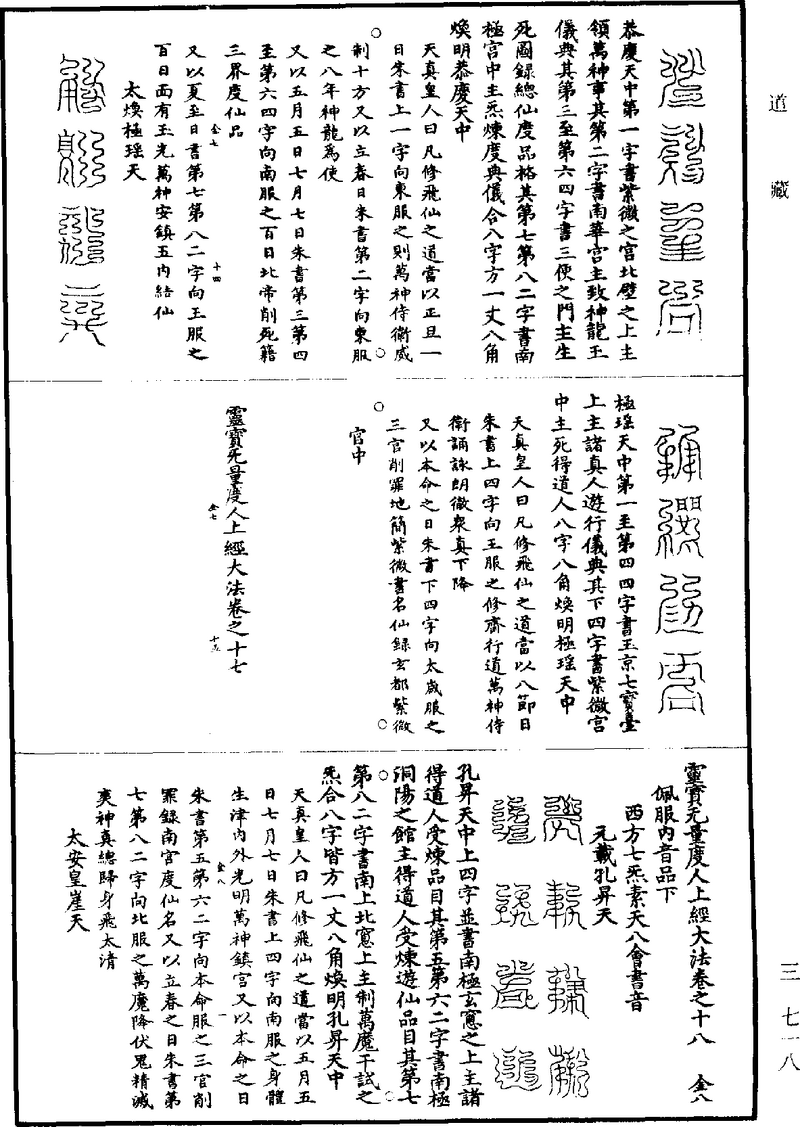 道藏
恭慶天中第一字書紫微之宮北壁之上主
領萬神事其第二字書南華宮主致神龍王
儀典其第三至第六四字書三便之門主生
死圖錄總仙度品格其第七第八二字書南
極宮中主炁煉度典儀合八字方一丈八角
煥明恭慶天中
天真皇人曰凡修飛仙之道當以正旦一
日朱書上一字向東服之則萬神侍衛威
制十方又以立春日朱書第二字向東服
之八年神龍爲使
又以五月五日七月七日朱書第三第四
至第六四字向南服之百日北帝削死籍
三界度仙品
又以夏至日書第七第八二字向王服之
百日面有玉光萬神安鎮五內結仙
太煥極瑶天
極瑶天中第一至第四四字書玉京七寶臺
上主諸真人遊行儀典其下四字書紫微宮
中主死得道人八字八角煥明極瑶天中
天真皇人曰凡修飛仙之道當以八節日
朱書上四字向王服之修齋行道萬神侍
衛誦詠朗徹衆真下降
又以本命之日朱書下四字向太歲服之
三官削罪地簡紫微書名仙錄玄都紫微
官中
靈寶无量度人上經大法卷之十七
靈寶无量度人上經大法卷之十八 全八
佩服內音品下
西方七炁素天八會書音
元載孔昇天
孔昇天中上四字並書南極玄窻之上主諸
得道人受煉品目其第五第六二字書南極
洞陽之館主得道人受煉遊仙品目其第七
第八二字書南上北窻上主制萬魔干試之
炁合八字皆方一丈八角煥明孔昇天中
天真皇人曰凡修飛仙之道當以五月五
日七月七日朱書上四字向南服之身體
生津內外光明萬神鎮宮又以本命之日
朱書第五第六二字向本命服之三官削
罪錄南宮度仙名又以立春之日朱書第
七第八二字向北服之萬魔降伏鬼精滅
爽神真總歸身飛太清
太安皇崖天
三 七一八